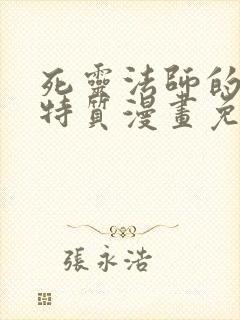 死靈法師的
特質漫畫免
張永浩